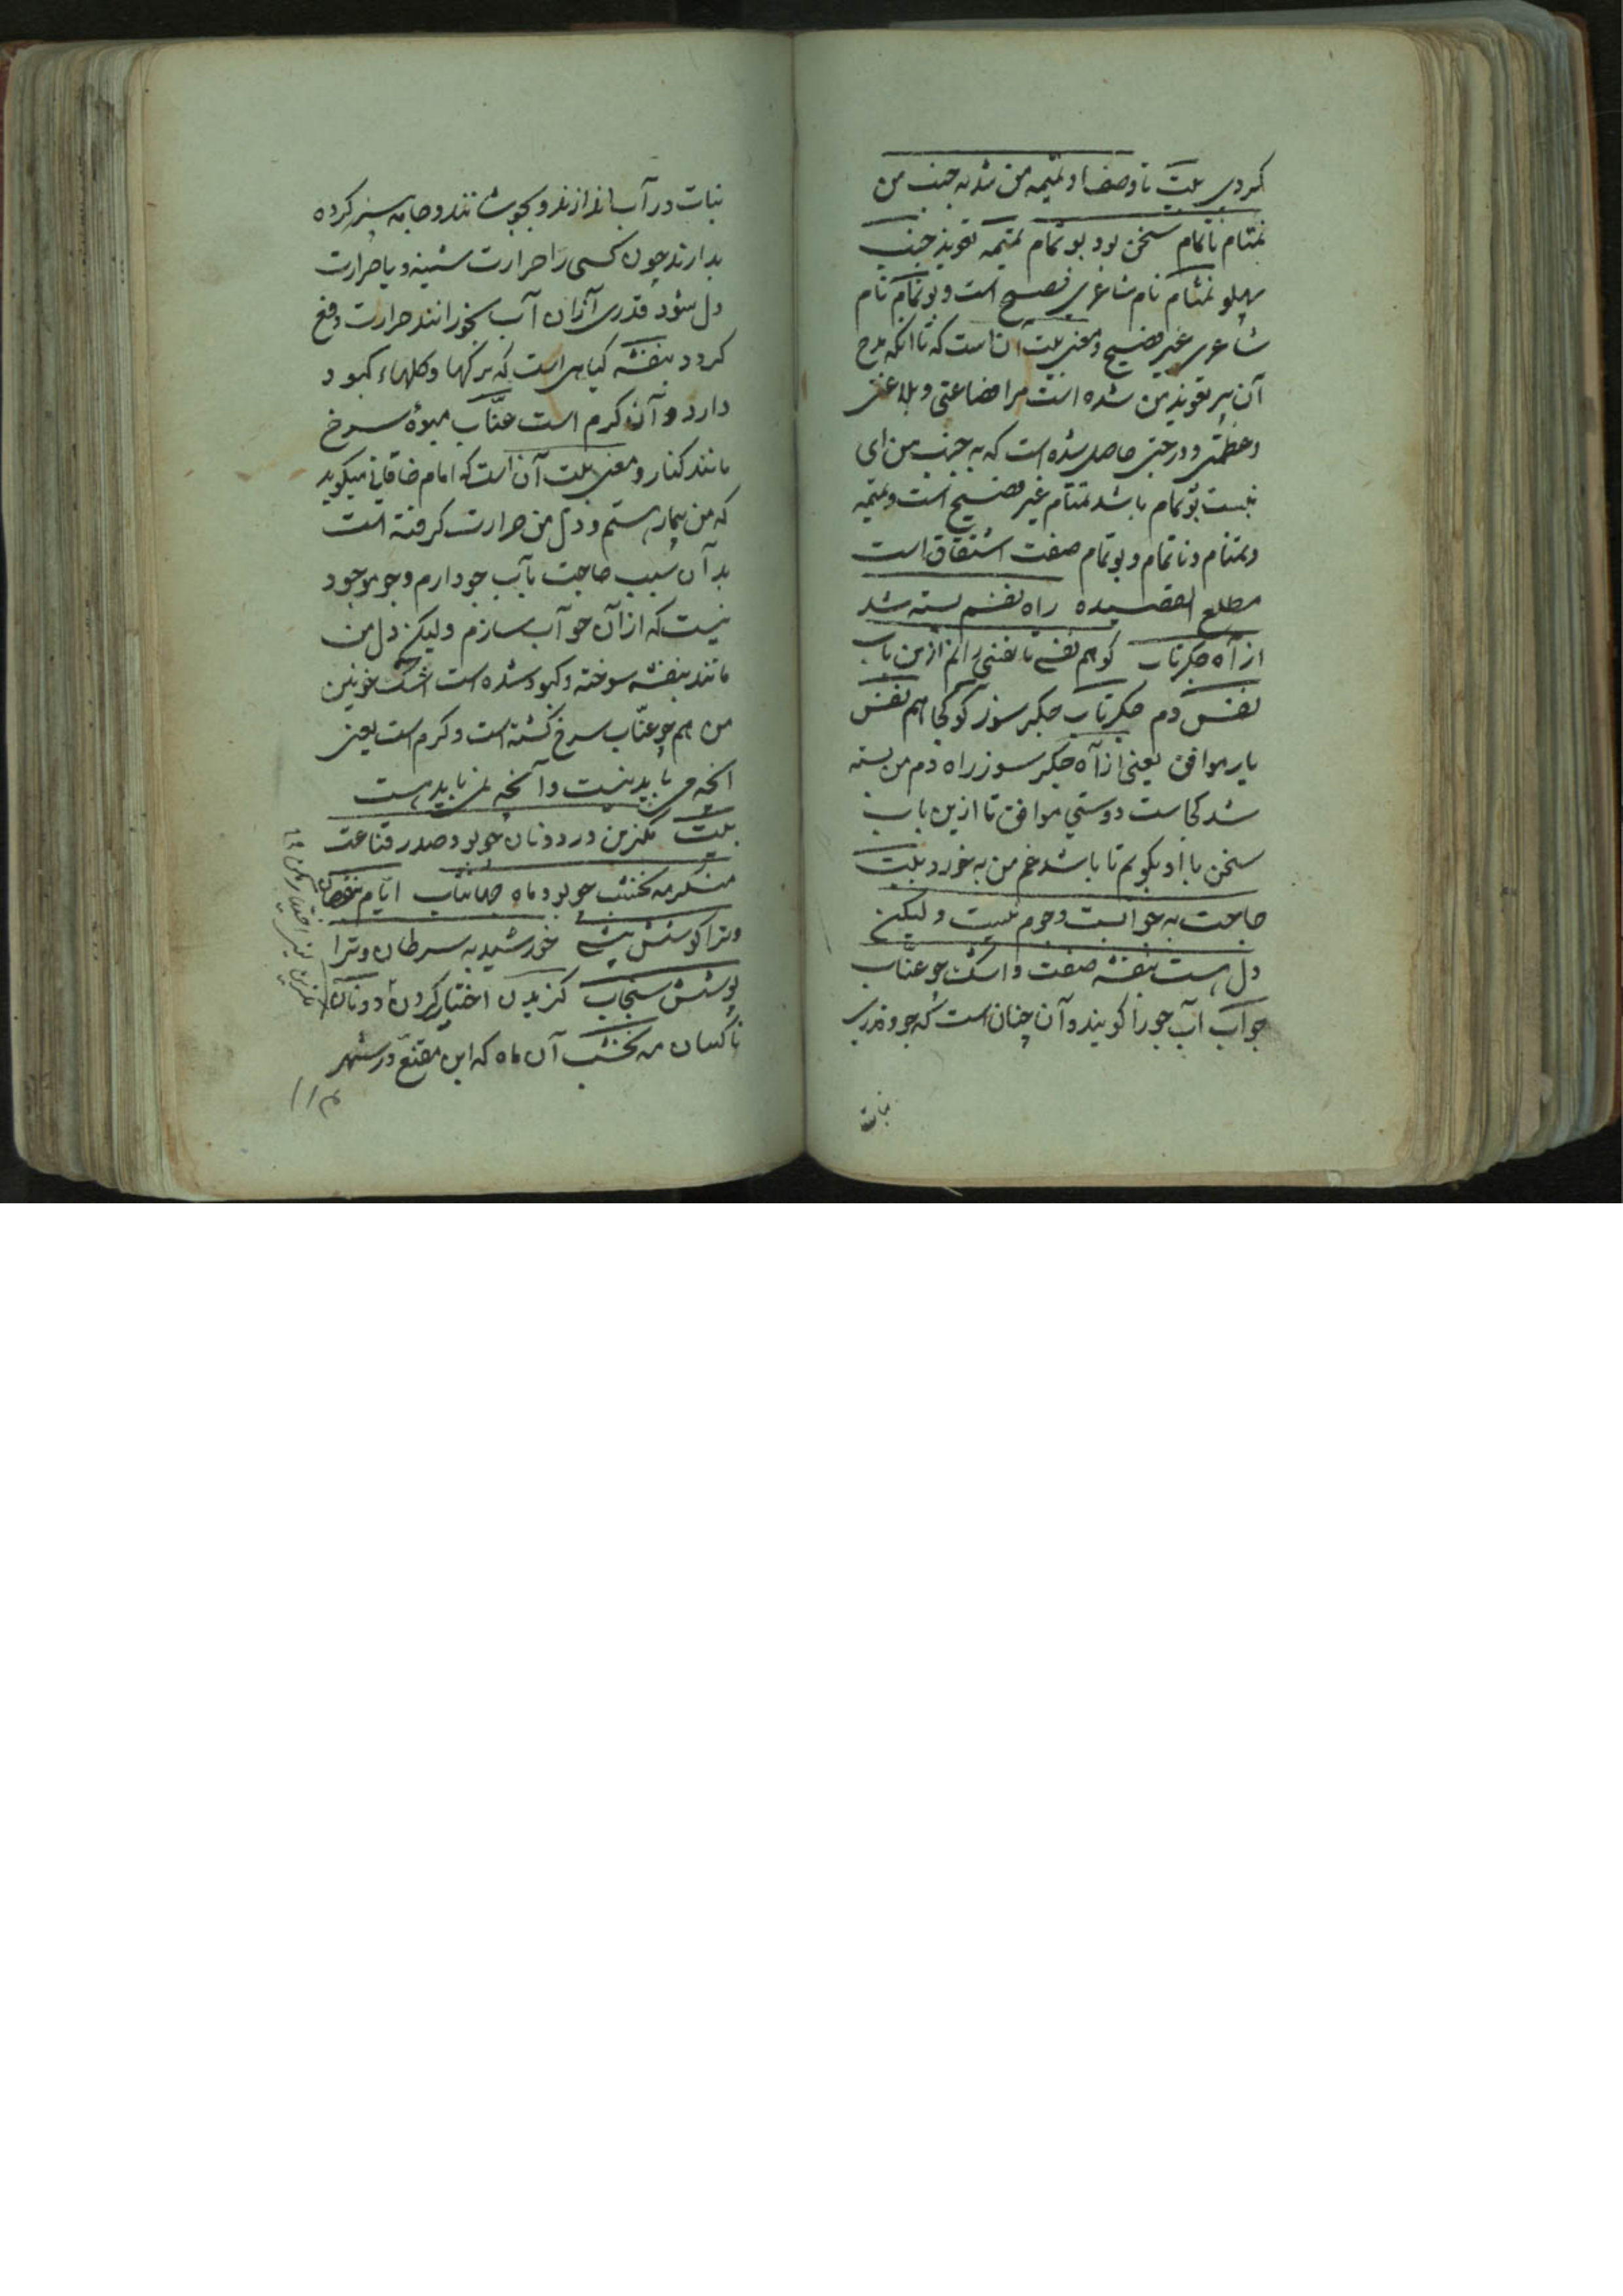 کردی بیت تا وصف او تمیمه من شد به جنب من
تمتام ناتمام سخن بود بو تمام تمیمه تعویذ جنب
پهلو تمتام نام شاعری فصیح است و بو تمام نام
شاعری غیر فصیح و معنی بیت آن است که تا آنکه مدح
آن سر تعویذ من شده است مرا فصاحتی و بلاغتی
و عظمتی و درجتی حاصل شده است که به جنب من ای
نسبت بو تمام باشد تمتام غیر فصیح است و تمیمه
و تمتام و ناتمام و بو تمام صفت اشتقاق است
مطلع القصیده راه نفسم بسته شد
از آه جگرتاب کو هم نفسی تا نفسی رانم ازین باب
نفس دم جگرتاب جگر سوز کو کجا هم نفس
یار موافق یعنی از آه جگر سوز راه دم من بسته
شد کجاست دوستی موافق تا ازین باب
سخن با او بکویم تا باشد غم من به خورد بیت
حاجت به جو ابست و جوم نیست ولیکن
دل هست بنفشه صفت و اشک چو عناب
جو آب آب جو را کویند و آن چنان است که جو و قدری
نبات
نبات در آب اندازند و بجوشانند و جامه سبز کرده
بدارند چون کسی را حرارت سینه و یا حرارت
دل شود قدری از آن آب بخورانند حرارت دفع
کردد بنفشه کیاهی است که برکها و کلهاء کبود
دارد و آن کرم است عنّاب میوۀ سرخ
مانند کنار و معنی بیت آن است که امام خاقانی میکوید
که من بیمار هستم و دل من حرارت کرفته است
بدآن سبب حاجت بآب جو دارم و جو موجود
نیست که از آن جو آب سازم ولیکن دل من
مانند بنفشه سوخته و کبود شده است اشک خونین
من هم چو عنّاب سرخ کشته است و کرم است یعنی
انچه می باید نیست و آنچه نمی باید هست
بیت مکزین در دونان چو بود صدر قناعت
منکر مه نخشب چو بود ماه جهانتاب ایام بنقصان
و ترا کوشش بیشی خورشید به سرطان و ترا
پوشش سنجاب کزیدن اختیار کردن دونان
ناکسان مه نخشب آن ماه که ابن مقنّع در شهر
مکزین یعنی اختیار مکن ۱۲